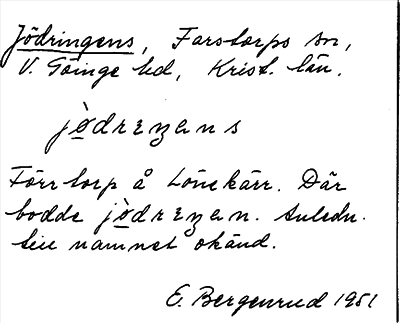 Jödringens, Farstorps sn,
V. Göinge hd, Krist. län.
jödreŋens
Förr torp å Lönekärr. Där
bodde jödreŋen. Anledn.
till namnet okänd.
E. Bergenrud 1951